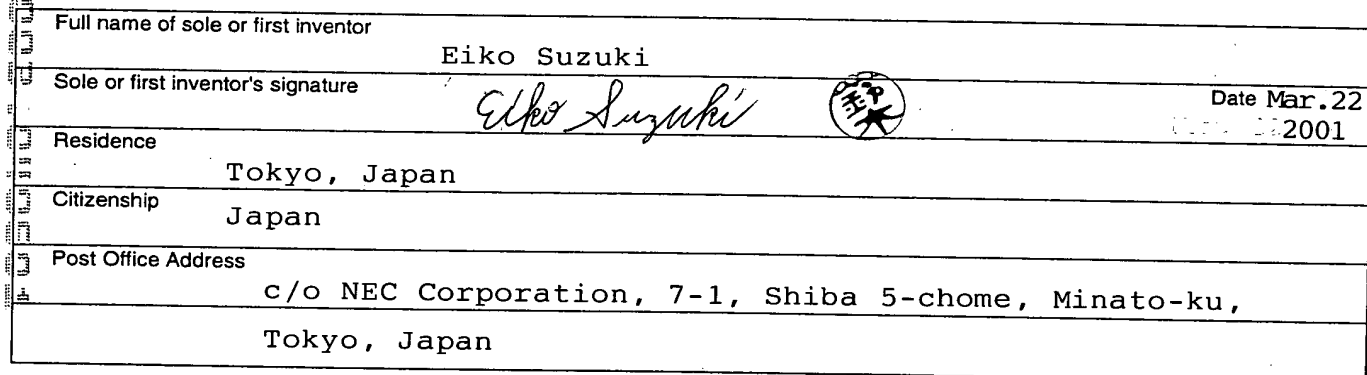 Full name of sole or first inventor
Eiko Suzuki
Sole or first inventor's signature
Eiko Suzuki
Date Mar.22
2001
Residence
Tokyo, Japan
Citizenship
Japan
Post Office Address
c/o NEC Corporation, 7-1, Shiba 5-chome, Minato-ku,
Tokyo, Japan